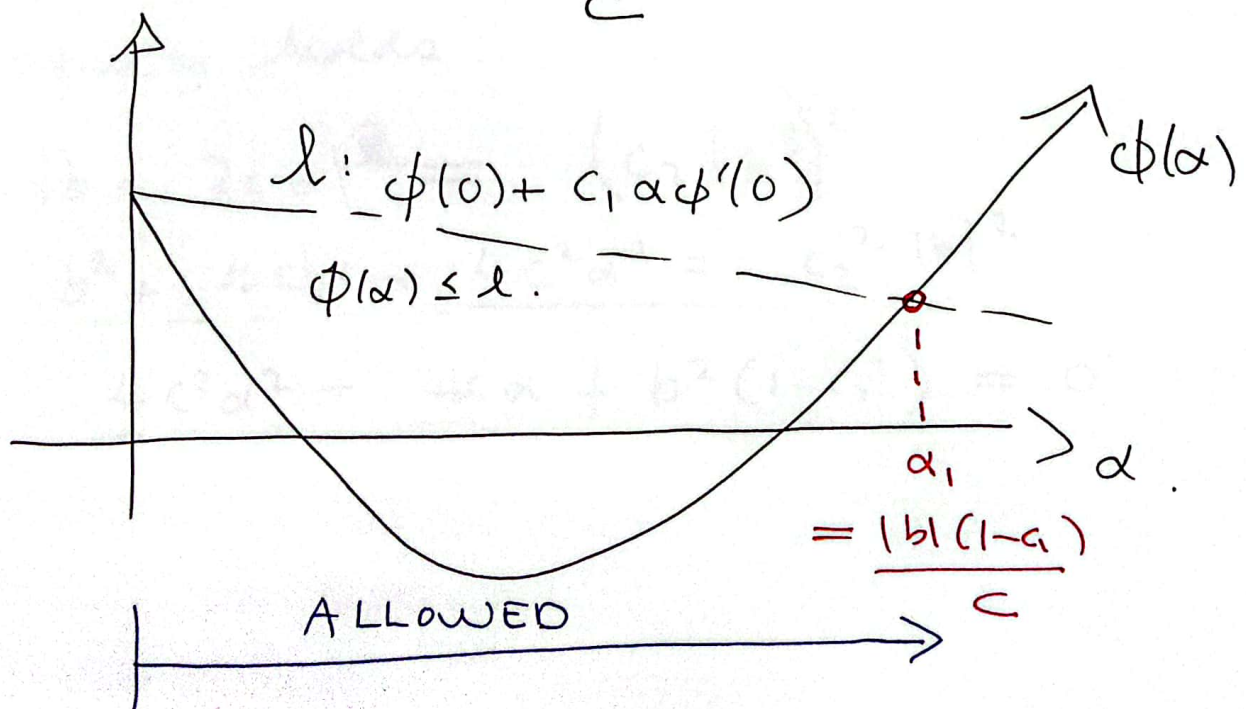 C
l: φ(0) + c₁ α φ'(0)
φ(α)
φ(α) ≤ l.
α₁
α.
= |b|(1-c₁)
C
ALLOWED